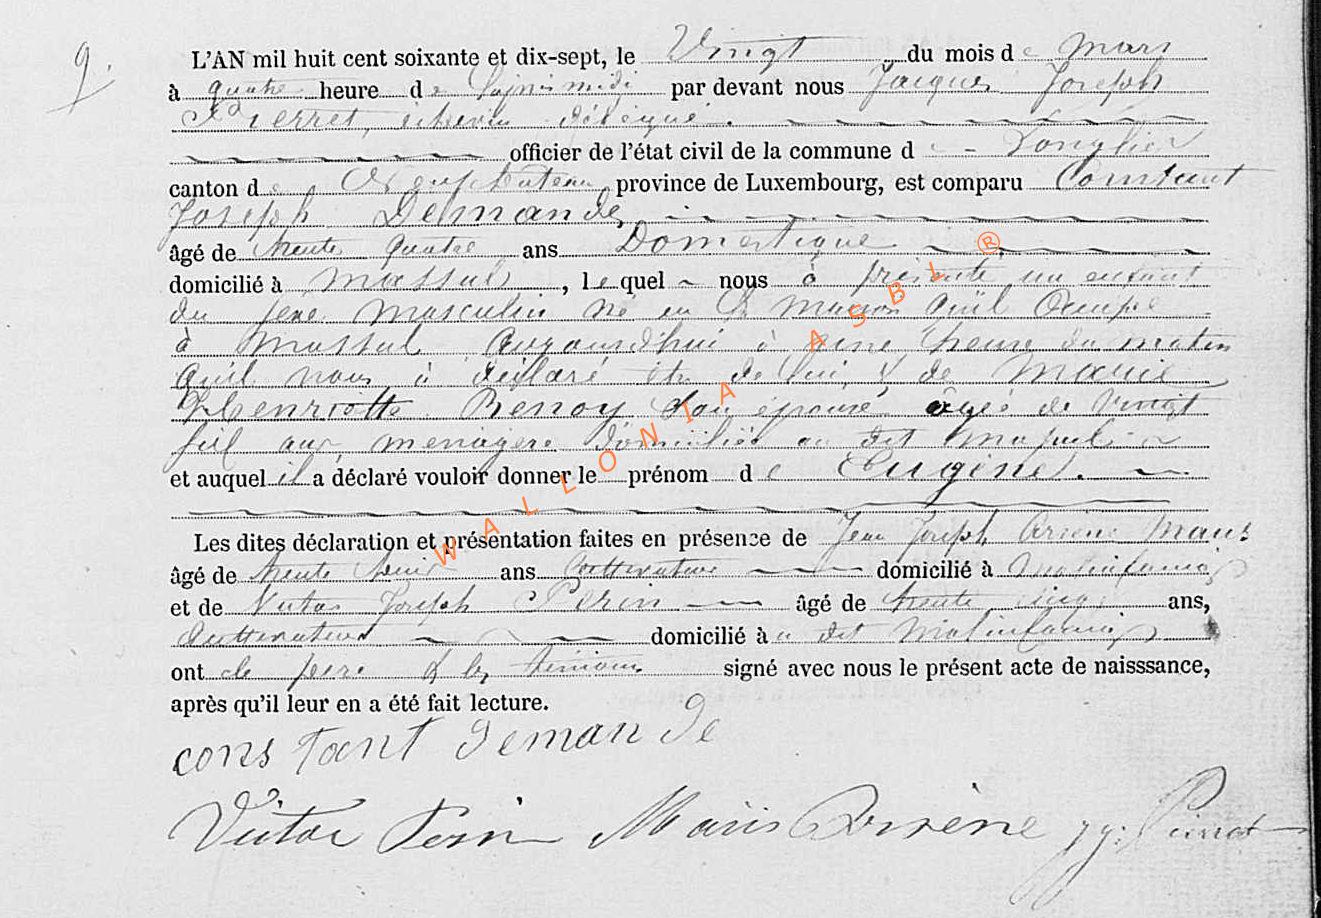 9.
L'AN mil huit cent soixante et dix-sept, le Vingt du mois de Mars
à quatre heure de l'après midi par devant nous Jacques Joseph
Pierret, échevin délégué.
officier de l'état civil de la commune de Longlier
canton de Neufchateau, province de Luxembourg, est comparu Constant
Joseph Demande,
âgé de trente quatre ans Domestique
domicilié à Massul, lequel nous à présenté un enfant
du sexe masculin né en la maison qu'il occupe
à Massul aujourd'hui à une heure du matin
qu'il nous à déclaré être de lui & de Marie
Henriette Renoy son épouse âgée de vingt
six ans menagere domiciliée au dit Massul
et auquel il a déclaré vouloir donner le prénom de Eugène.
Les dites déclaration et présentation faites en présence de Jean Joseph Arsène Maus
âgé de trente ans Cultivateur domicilié à Molinfaing
et de Victor Joseph Perin âgé de trente cinq ans,
Cultivateur domicilié au dit Molinfaing
ont le pere & les témoins signé avec nous le présent acte de naisssance,
après qu'il leur en a été fait lecture.
constant demande
Victor Perin Maüs Arsène JJ: Pierret
WALLONIA ASBL ®